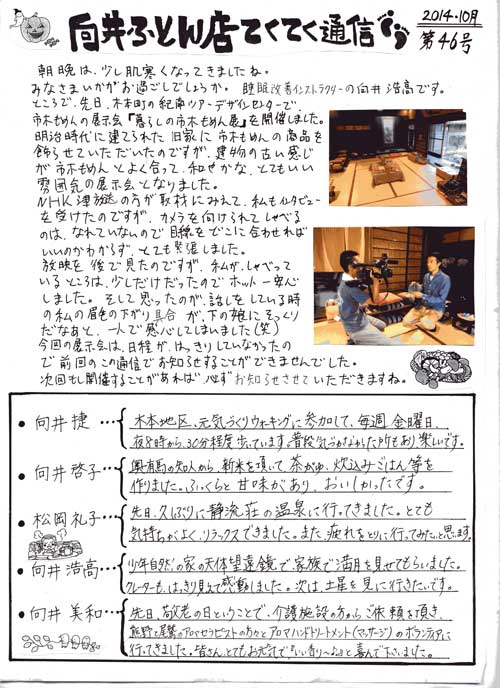 向井ふとん店てくてく通信
2014.10月
第46号
朝晩は、少し肌寒くなってきましたね。
みなさまいかがお過ごしでしょうか。睡眠改善インストラクターの向井浩高です。
ところで、先日、木本町の紀南ツアーデザインセンターで、
市木もめんの展示会「暮らしの市木もめん展」を開催しました。
明治時代に建てられた旧家に市木もめんの商品を
飾らせていただいたのですが、建物の古い感じ
が市木もめんとよく合って、和やかな、とてもいい
雰囲気の展示会となりました。
NHK津放送の方が取材にみえて、私もインタビュー
を受けたのですが、カメラを向けられてしゃべる
のは、なれていないので目線をどこに合わせれば
いいのかわからず、とても緊張しました。
放映を後で見たのですが、私が、しゃべって
いるところは、少しだけだったのでホッと一安心
しました。そして思ったのが、話しをしている時
の私の眉毛の下がり具合が、下の娘にそっくり
だなぁと、一人で感心してしまいました(笑)
今回の展示会は、日程が、はっきりしていなかったの
で前回のこの通信でお知らせすることができませんでした。
次回もし開催することがあれば必ずお知らせさせていただきますね。
• 向井 捷 … 木本地区、元気づくりウォーキングに参加して、毎週金曜日、
夜8時から、30分程度歩いています。普段気づかなかった所もあり楽しいです。
• 向井 啓子 … 奥有馬の知人から、新米を頂いて、茶がゆ、炊込みごはん等を
作りました。ふっくらと甘味があり、おいしかったです。
• 松岡 礼子 … 先日、久しぶりに静流荘の温泉に行ってきました。とても
気持ちがよく、リラックスできました。また、疲れをとりに行ってみたいと思います。
• 向井 浩高 … 少年自然の家の天体望遠鏡で、家族で満月を見せてもらいました。
クレーターも、はっきり見えて感動しました。次は、土星を見に行きたいです。
• 向井 美和 … 先日、敬老の日ということで、介護施設の方からご依頼を頂き、
熊野と尾鷲のアロマセラピストの方々とアロマハンドトリートメント(マッサージ)のボランティアに
行ってきました。皆さん、とてもお元気で「いい香り〜」と喜んで下さいました。